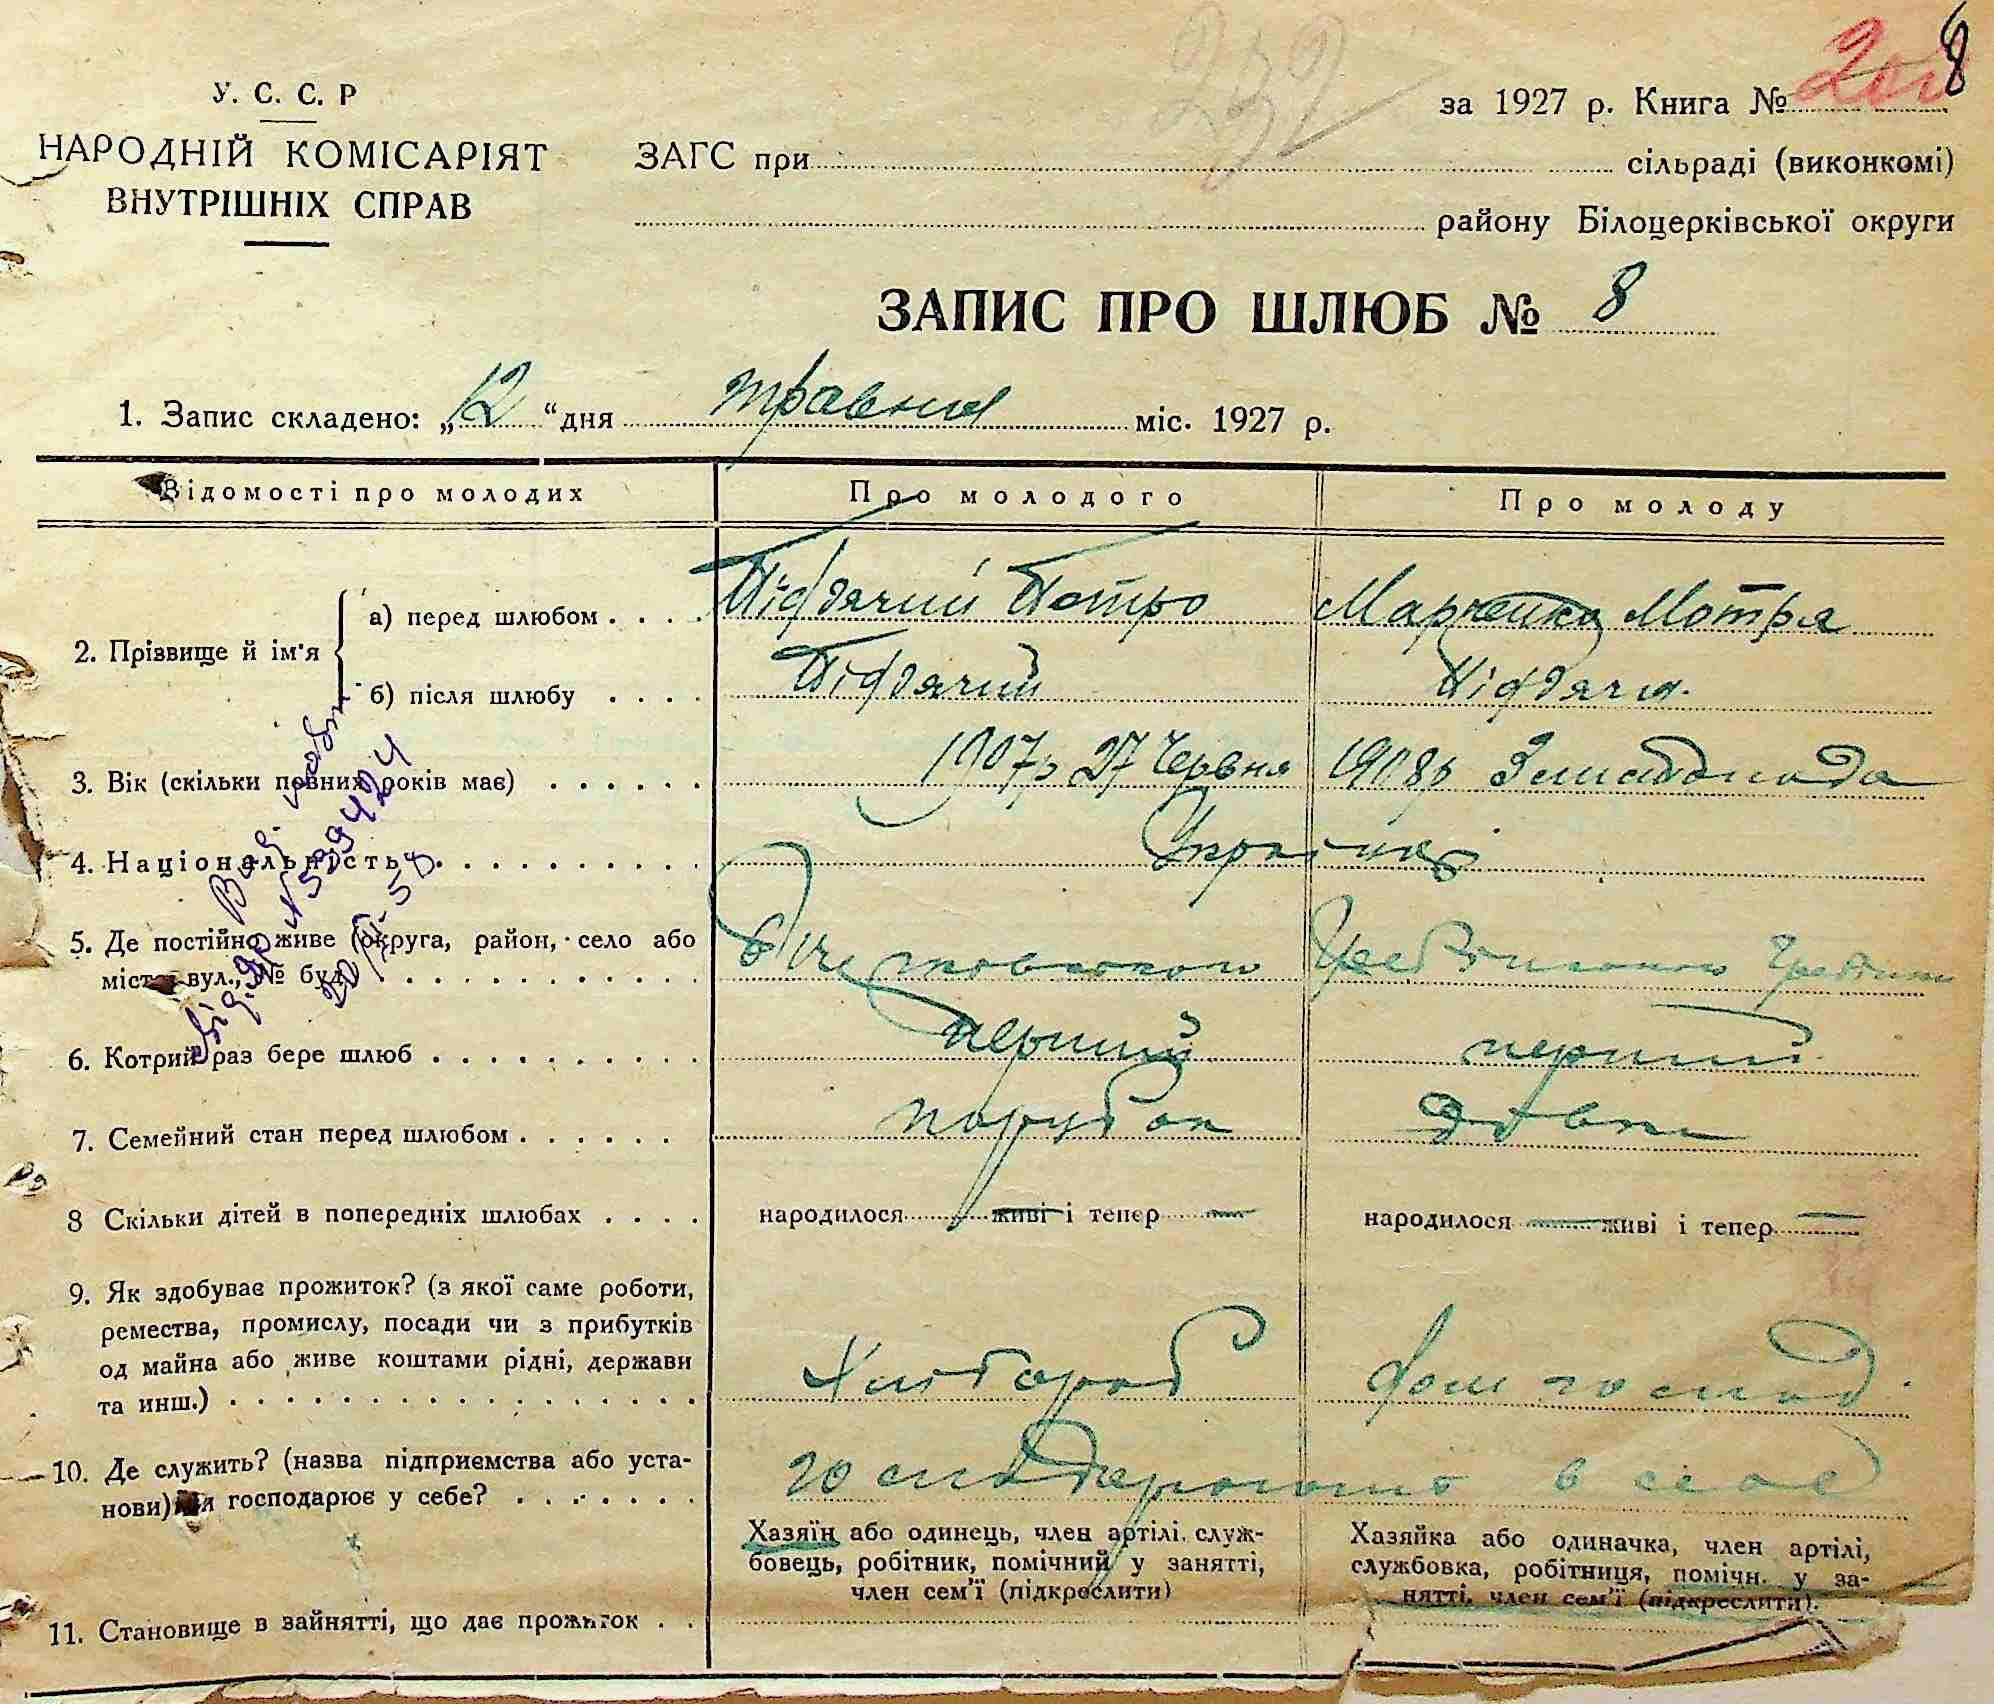 8
232
У. С. С. Р
за 1927 р. Книга №
НАРОДНІЙ КОМІСАРІЯТ
ВНУТРІШНІХ СПРАВ
ЗАГС при сільраді (виконкомі)
району Білоцерківської округи
ЗАПИС ПРО ШЛЮБ № 8
1. Запис складено: „12“ дня травня міс. 1927 р.
Відомості про молодих Про молодого Про молоду
2. Прізвище й ім'я
а) перед шлюбом Підд'ячий Петро Марченко Мотря
б) після шлюбу Підд'ячий Підд'яча.
3. Вік (скільки повних років має) 1907р 27 Червня 1908р 3 листопада
4. Національність Україн
5. Де постійно живе (округа, район, село або
місто, вул., № буд.)
6. Котрий раз бере шлюб перший перший
7. Семейний стан перед шлюбом парубок дівка
8 Скільки дітей в попередніх шлюбах народилося живі і тепер — народилося — живі і тепер —
9. Як здобуває прожиток? (з якої саме роботи,
ремества, промислу, посади чи з прибутків
од майна або живе коштами рідні, держави
та инш.) Хлібороб дом господ.
10. Де служить? (назва підприємства або уста-
нови) чи господарює у себе? господарюють в себе
Хазяїн або одинець, член артілі, служ-
бовець, робітник, помічний у занятті,
член сем'ї (підкреслити)
Хазяйка або одиначка, член артілі,
службовка, робітниця, помічн. у за-
нятті, член сем'ї (підкреслити).
11. Становище в зайнятті, що дає прожиток